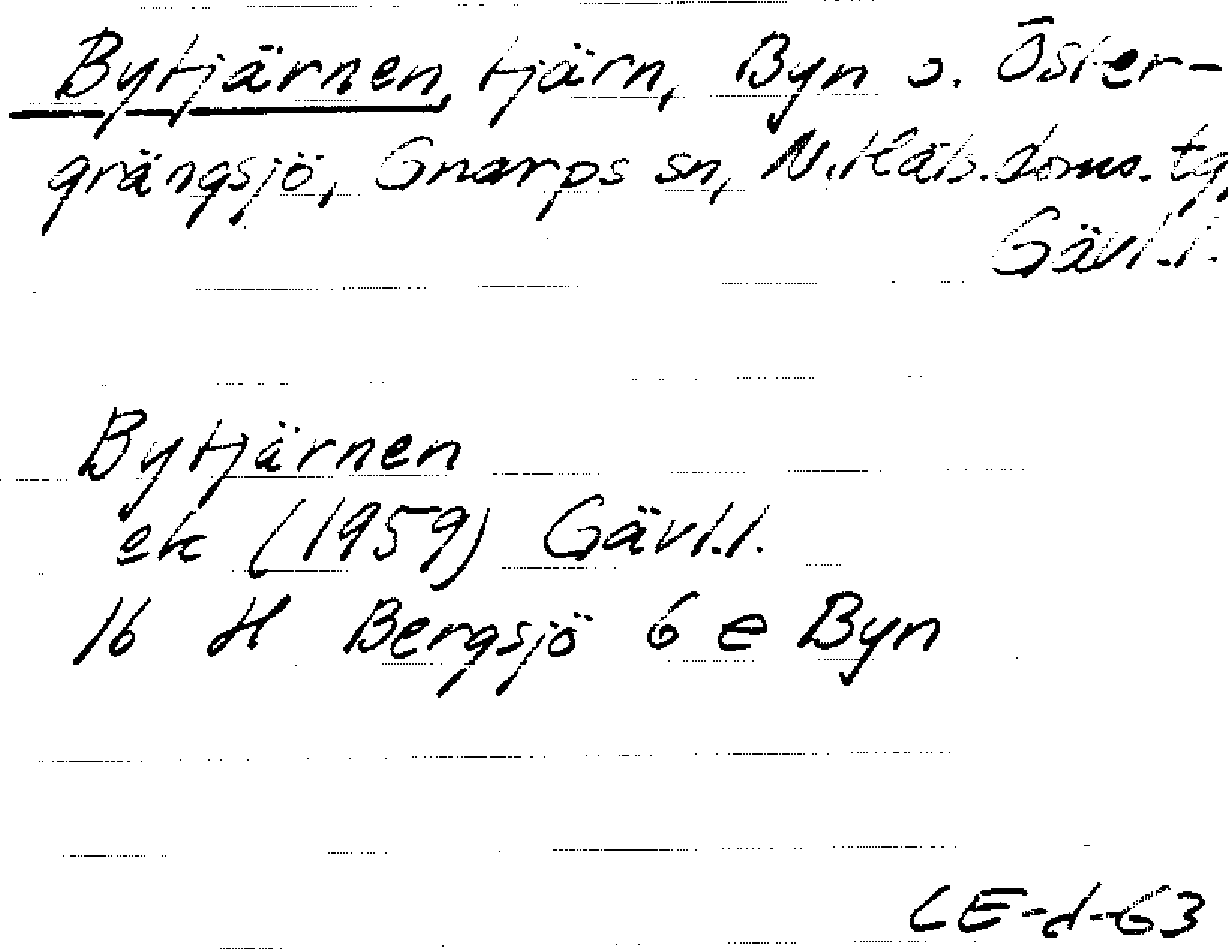 Bytjärnen, tjärn, Byn o. Öster-
grängsjö, Gnarps sn, N. Häls. doms. tg,
Gävl.l.
Bytjärnen
ek (1959) Gävl.l.
16 H Bergsjö 6 e Byn
CE-d-63